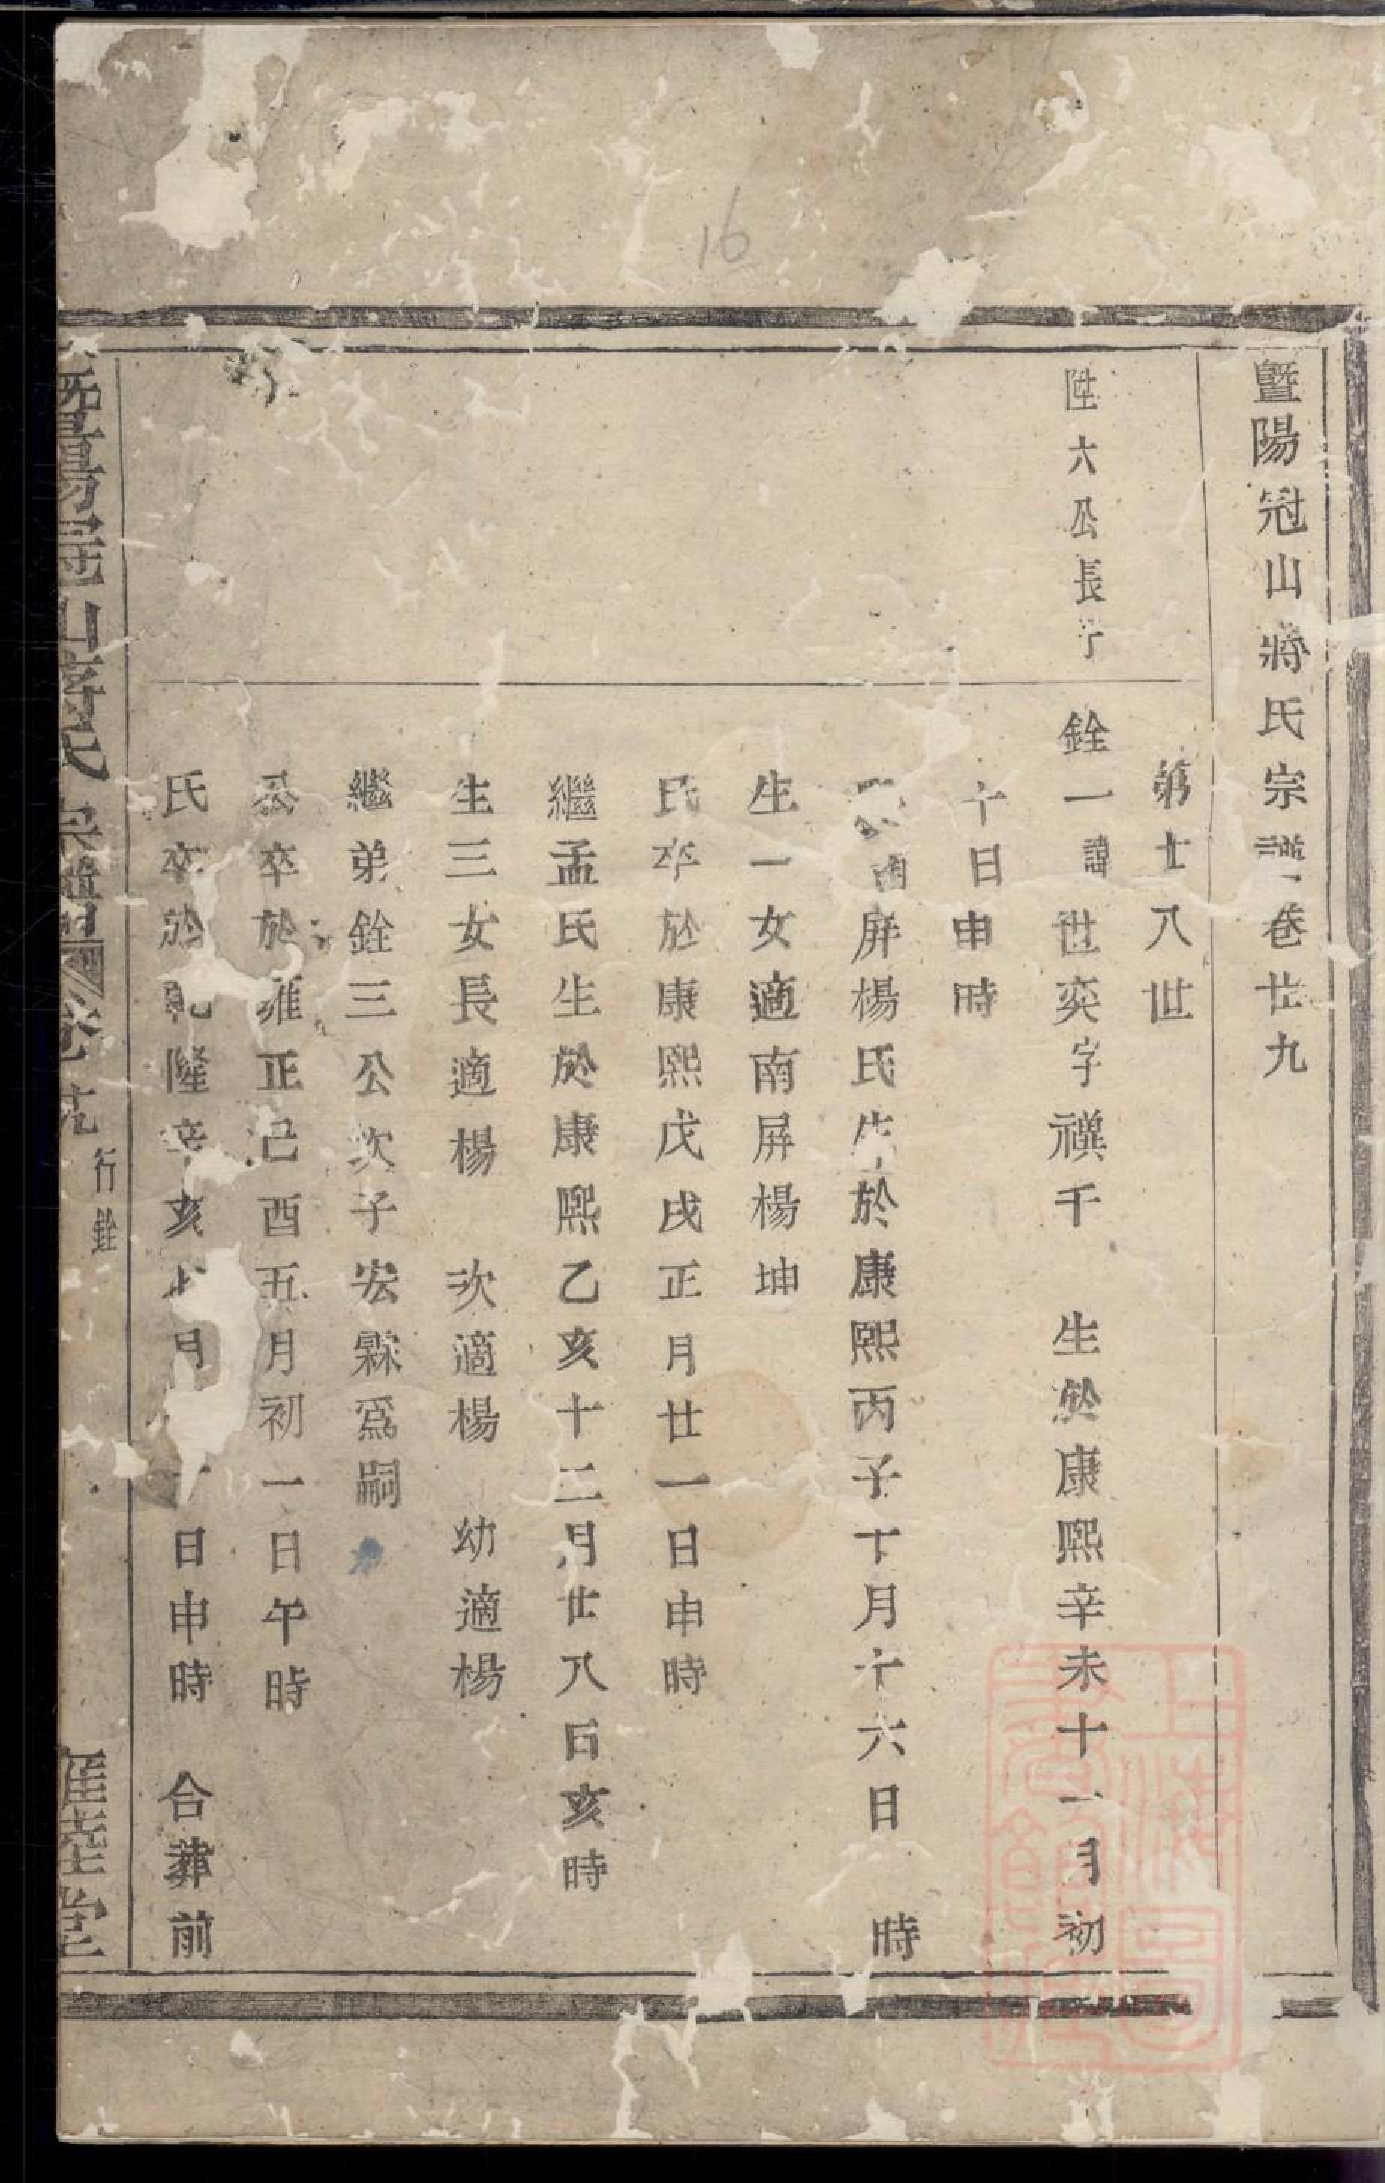 16
暨陽冠山蔣氏宗譜卷廿九
第十八世
陞六公長子
銓一諱世奕字禩千 生於康熙辛未十一月初
十日申時
南屏楊氏生於康熙丙子十月十六日 時
生一女適南屏楊坤
氏卒於康熙戊戌正月廿一日申時
繼孟氏生於康熙乙亥十二月廿八日亥時
生三女長適楊 次適楊 幼適楊
繼弟銓三公次子宏霖爲嗣
公卒於雍正己酉五月初一日午時
氏卒於乾隆辛亥 月 日申時 合葬前
暨陽冠山蔣氏宗譜 卷 行銓 堂
上海圖書館藏